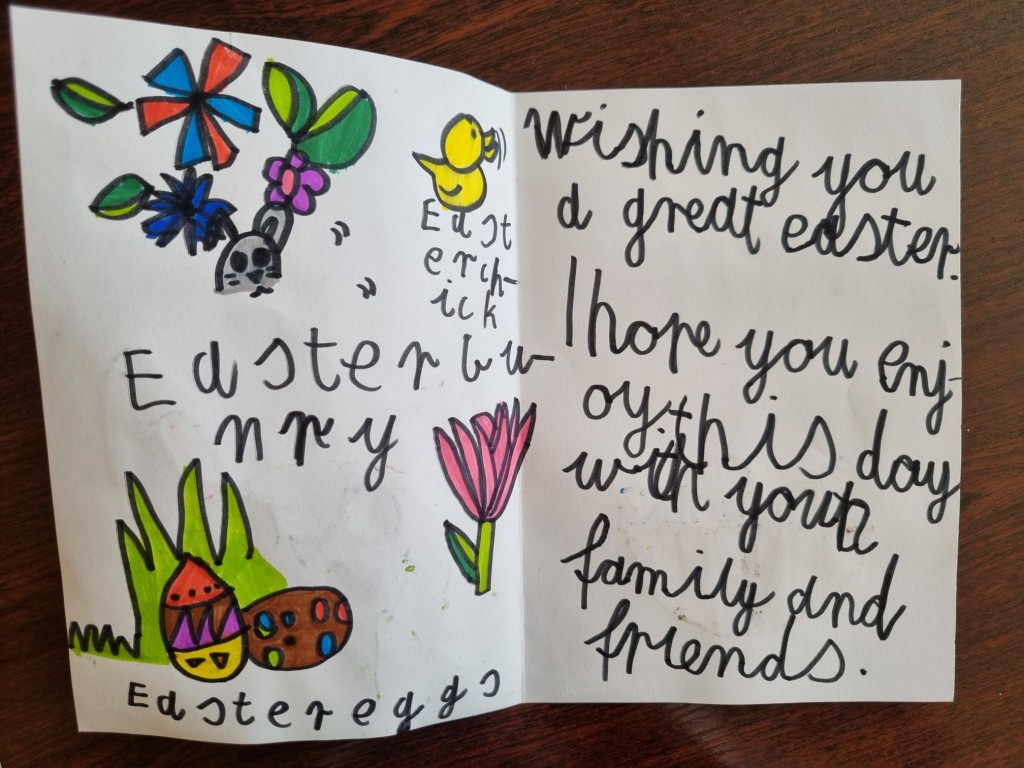 East
erch-
ick
Easter bu-
nny
Easter eggs
Wishing you
a great easter.
I hope you enj-
oy this day
with your
family and
friends.